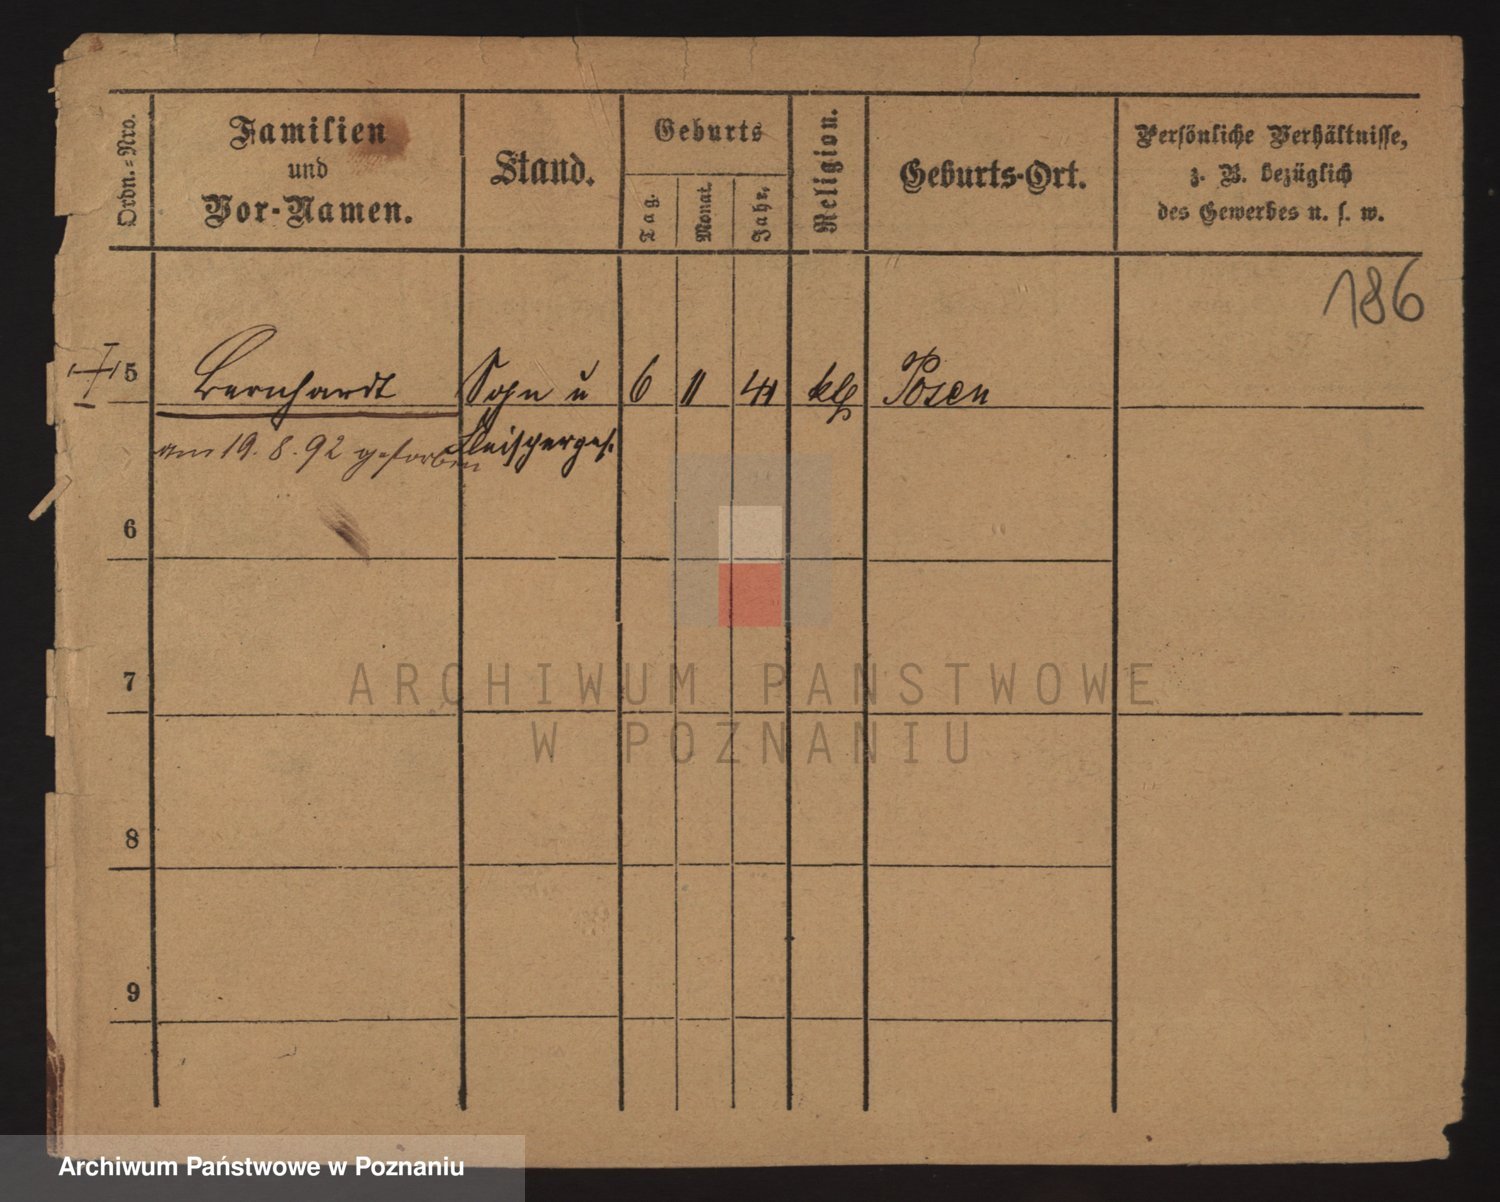 Ordn.=Nro.
Familien
und
Vor-Namen.
Stand.
Geburts
Tag.
Monat.
Jahr.
Religion.
Geburts-Ort.
Persönliche Verhältnisse,
z. B. bezüglich
des Gewerbes u. s. w.
186
5 Bernhardt Sohn u 6 11 41 klh Posen
am 19. 8. 92 gestorben Fleischerges.
6
7
ARCHIWUM PAŃSTWOWE
W POZNANIU
8
9
Archiwum Państwowe w Poznaniu